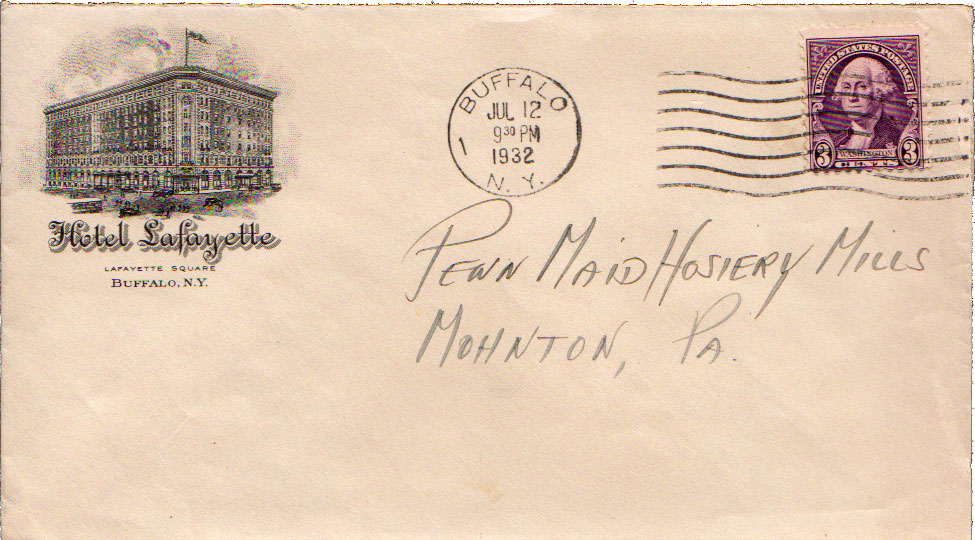 Hotel Lafayette
LAFAYETTE SQUARE
BUFFALO, N.Y.
BUFFALO
JUL 12
930 PM
1932
N. Y.
1
UNITED STATES POSTAGE
WASHINGTON
3 3
CENTS
PENN MAID HOSIERY MILLS
MOHNTON, PA.